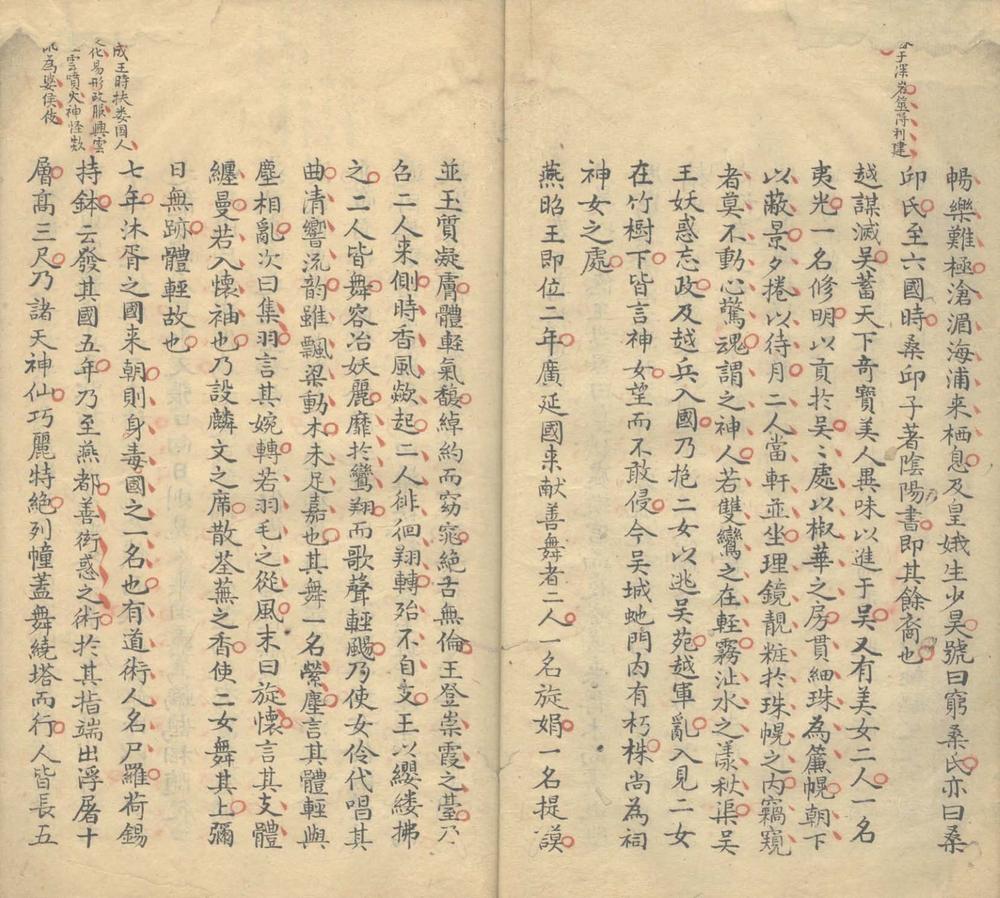 子深岩筮得利建
暢樂難極滄湄海浦来栖息及皇娥生少昊號曰窮桑氏亦曰桑
邱氏至六國時桑邱子著陰陽書即其餘裔也
越謀滅吴蓄天下奇寶美人異味以進于吴又有美女二人一名
夷光一名修明以貢於吴〻處以椒華之房貫細珠為簾幌朝下
以蔽景夕捲以待月二人當軒並坐理鏡靚粧於珠幌之内竊窺
者莫不動心驚魂謂之神人若雙鸞之在輕霧沚水之漾秋渠吴
王妖惑忘政及越兵入國乃抱二女以逃吴苑越軍亂入見二女
在竹樹下皆言神女望而不敢侵今吴城虵門内有朽株尚為祠
神女之處
燕昭王即位二年廣延國来献善舞者二人一名旋娟一名提謨
並玉質凝膚體軽氣馥綽約而窈窕絶古無倫王登崇霞之臺乃
召二人来側時香風歘起二人徘徊翔轉殆不自支王以纓縷拂
之二人皆舞容冶妖麗靡於鸞翔而歌聲輕颺乃使女伶代唱其
曲清響流韵雖飄梁動木未足嘉也其舞一名縈塵言其體輕與
塵相亂次曰集羽言其婉轉若羽毛之從風末曰旋懷言其支體
纏曼若入懷袖也乃設麟文之席散荃蕪之香使二女舞其上彌
日無跡體輕故也
成王時扶婁國人
化易形改服興雲
雲噴火神怪欻
為婆侯伎
七年沐胥之國来朝則身毒國之一名也有道術人名尸羅荷錫
持鉢云發其國五年乃至燕都善衒惑之術於其指端出浮屠十
層髙三尺乃諸天神仙巧麗特絶列幢盖舞繞塔而行人皆長五